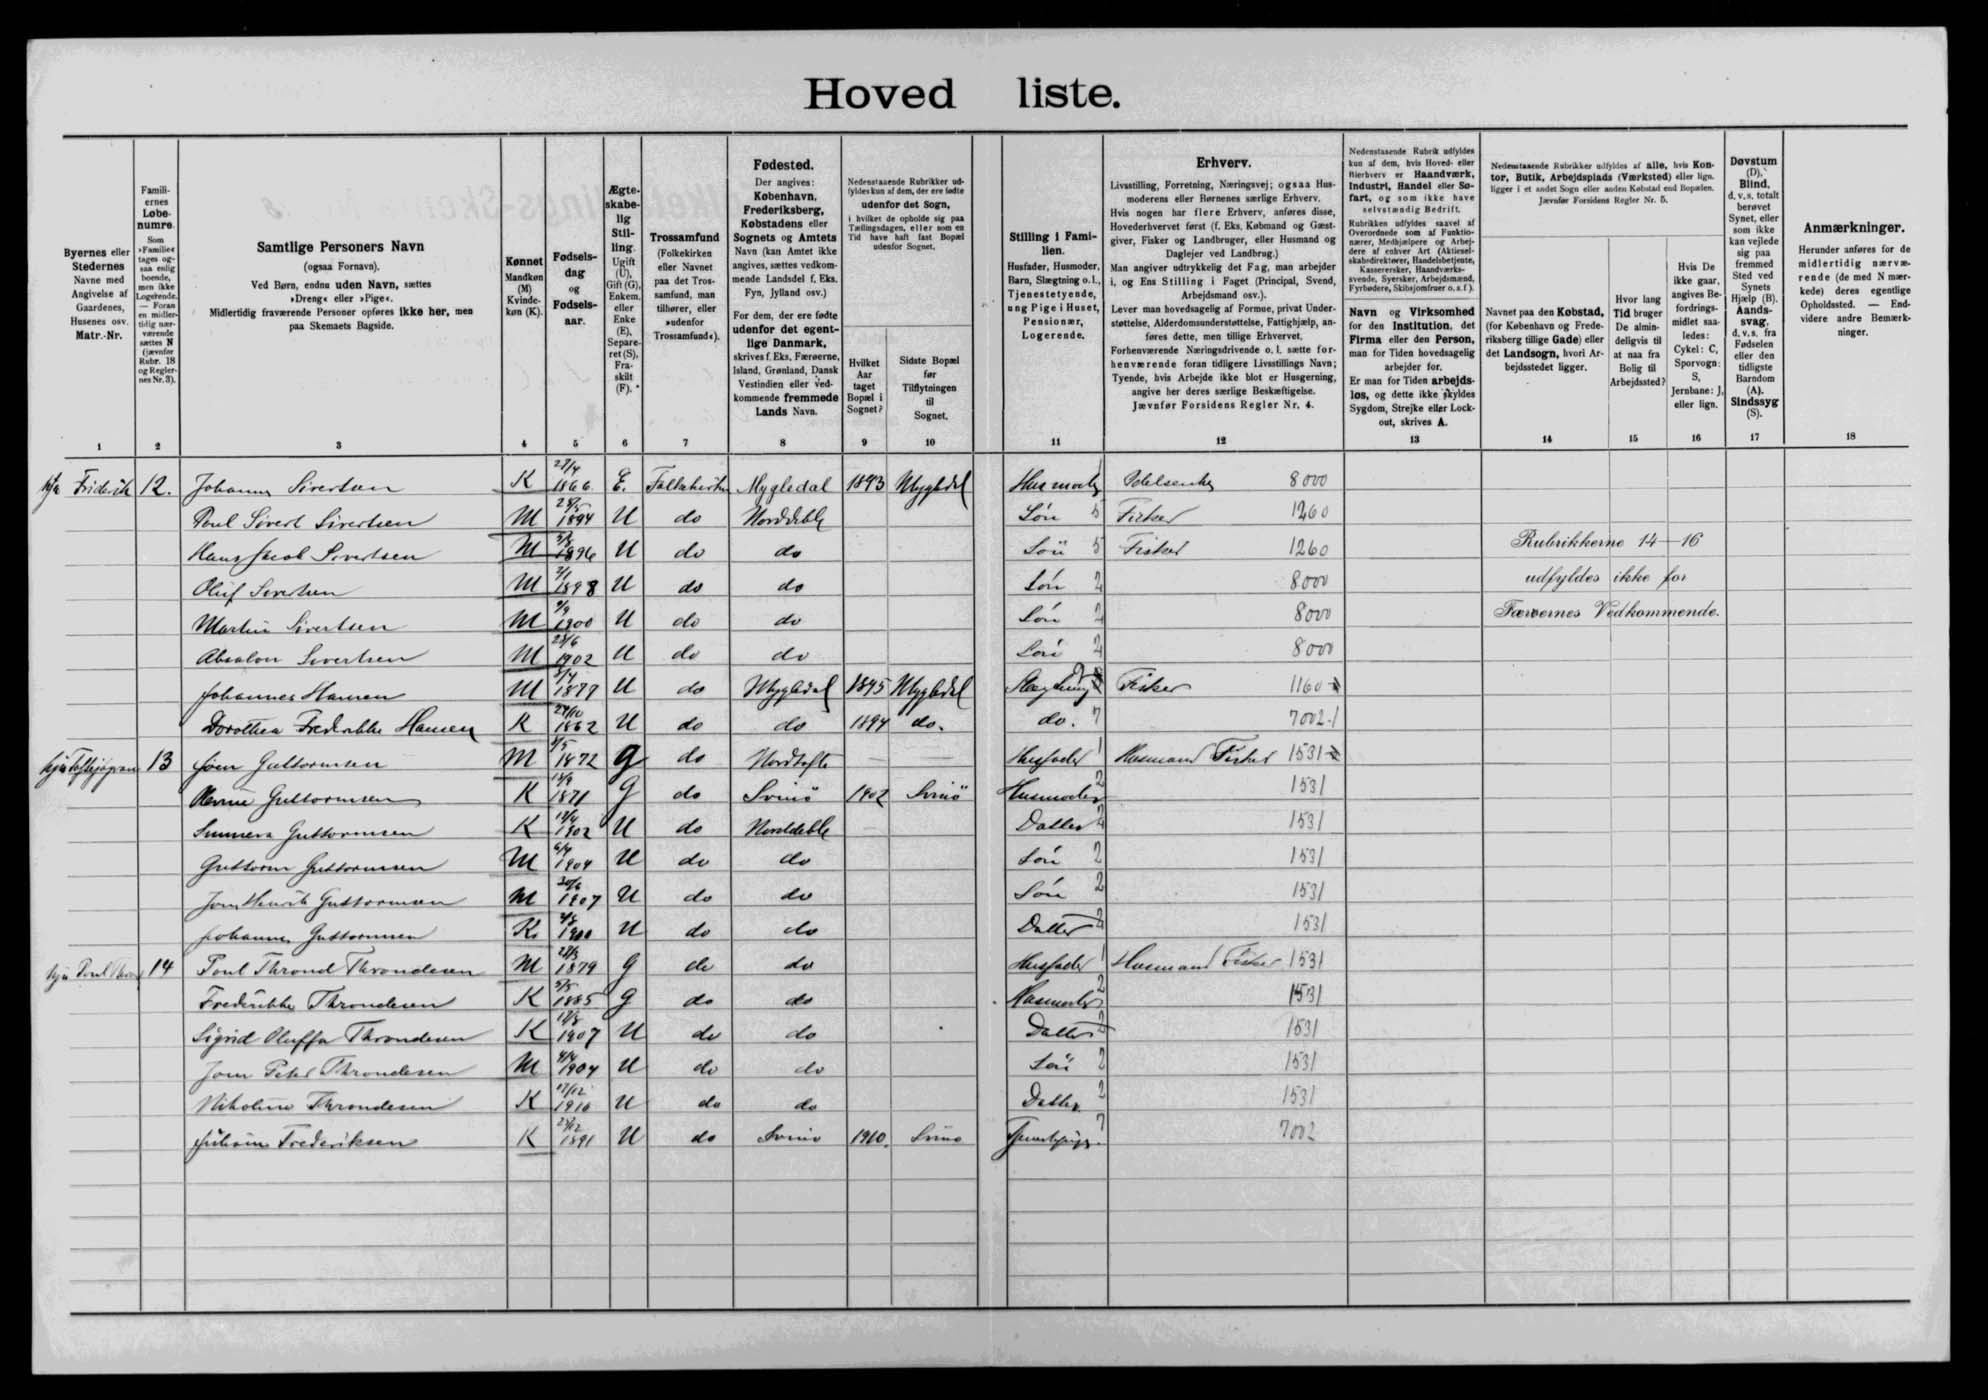 Hoved liste.
Byernes eller Stedernes Navne med Angivelse af Gaardenes, Husenes osv. Matr.-Nr.
Familiernes Løbenumre. Som »Familie« tages ogsaa enlig boende, men ikke Logerende. — Foran en midlertidig nærværende sættes N (jævnfør Rubr. 18 og Regler nes Nr. 3).
Samtlige Personers Navn
(ogsaa Fornavn).
Ved Børn, endnu uden Navn, sættes
»Dreng« eller »Pige«.
Midlertidig fraværende Personer opføres ikke her, men
paa Skemaets Bagside.
Kønnet Mandkøn (M) Kvindekøn (K).
Fødselsdag og Fødselsaar.
Ægteskabelig Stilling. Ugift (U), Gift (G), Enkem. eller Enke (E), Separeret (S), Fraskilt (F).
Trossamfund (Folkekirken eller Navnet paa det Trossamfund, man tilhører, eller »udenfor Trossamfund«).
Fødested.
Der angives: København, Frederiksberg, Købstadens eller Sognets og Amtets Navn (kan Amtet ikke angives, sættes vedkommende Landsdel f. Eks. Fyn, Jylland osv.)
For dem, der ere fødte udenfor det egentlige Danmark, skrives f. Eks. Færøerne, Island, Grønland, Dansk Vestindien eller vedkommende fremmede Lands Navn.
Nedenstaaende Rubrikker udfyldes kun af dem, der ere fødte udenfor det Sogn, i hvilket de opholde sig paa Tællingsdagen, eller som en Tid have haft fast Bopæl udenfor Sognet.
Hvilket Aar taget Bopæl i Sognet?
Sidste Bopæl før Tilflytningen til Sognet.
Stilling i Familien.
Husfader, Husmoder, Barn, Slægtning o. l., Tjenestetyende, ung Pige i Huset, Pensionær, Logerende.
Erhverv.
Livsstilling, Forretning, Næringsvej; ogsaa Husmoderens eller Børnenes særlige Erhverv.
Hvis nogen har flere Erhverv, anføres disse, Hovederhvervet først (f. Eks. Købmand og Gæstgiver, Fisker og Landbruger, eller Husmand og Daglejer ved Landbrug.)
Man angiver udtrykkelig det Fag, man arbejder i, og Ens Stilling i Faget (Principal, Svend, Arbejdsmand osv.).
Lever man hovedsagelig af Formue, privat Understøttelse, Alderdomsunderstøttelse, Fattighjælp, anføres dette, men tillige Erhvervet.
Forhenværende Næringsdrivende o. l. sætte forhenværende foran tidligere Livsstillings Navn;
Tyende, hvis Arbejde ikke blot er Husgerning, angive her deres særlige Beskæftigelse.
Jævnfør Forsidens Regler Nr. 4.
Nedenstaaende Rubrik udfyldes kun af dem, hvis Hoved- eller Bierhverv er Haandværk, Industri, Handel eller Søfart, og som ikke have selvstændig Bedrift.
Rubrikken udfyldes saavel af Overordnede som af Funktionærer, Medhjælpere og Arbejdere af enhver Art (Aktieselskabsdirektører, Handelsbetjente, Kasserersker, Haandværkssvende, Syersker, Arbejdsmænd, Fyrbødere, Skibsjomfruer o. s. f.).
Navn og Virksomhed for den Institution, det Firma eller den Person, man for Tiden hovedsagelig arbejder for.
Er man for Tiden arbejdsløs, og dette ikke skyldes Sygdom, Strejke eller Lockout, skrives A.
Nedenstaaende Rubrikker udfyldes af alle, hvis Kontor, Butik, Arbejdsplads (Værksted) eller lign. ligger i et andet Sogn eller anden Købstad end Bopælen. Jævnfør Forsidens Regler Nr. 5.
Navnet paa den Købstad, (for København og Frederiksberg tillige Gade) eller det Landsogn, hvori Arbejdsstedet ligger.
Hvor lang Tid bruger De almindeligvis til at naa fra Bolig til Arbejdssted?
Hvis De ikke gaar, angives Befordringsmidlet saaledes: Cykel: C, Sporvogn: S, Jernbane: J, eller lign.
Døvstum (D), Blind, d. v. s. totalt berøvet Synet, eller som ikke kan vejlede sig paa fremmed Sted ved Synets Hjælp (B). Aandssvag, d. v. s. fra Fødselen eller den tidligste Barndom (A). Sindssyg (S).
Anmærkninger.
Herunder anføres for de midlertidig nærværende (de med N mærkede) deres egentlige Opholdssted. — Endvidere andre Bemærkninger.
1 2 3 4 5 6 7 8 9 10 11 12 13 14 15 16 17 18
12. Johanna Sivertsen K 1866 E. Folkekirken Mygledal 1893 Mygledal Husmoder 1 8000
Poul Sivert Sivertsen M 1894 U do Norddeble Søn 5 Fisker 1260
Hans Jacob Sivertsen M 1896 U do do Søn 5 Fisker 1260
Rubrikkerne 14—16
Oluf Sivertsen M 2/1 1898 U do do Søn 2 8000
udfyldes ikke for
Martin Sivertsen M 1900 U do do Søn 2 8000
Færøernes Vedkommende.
Absalon Sivertsen M 1902 U do do Søn 2 8000
Johannes Hansen M 1877 U do Mygledal 1895 Mygledal Slægtning Fisker 1160
Dorothea Frederikke Hansen K 1862 U do do 1894 do. do. 7 7002
13 Guttormsen M 1872 G do Nordtofte Husfader 1 Husmand Fisker 1531
Guttormsen K 1871 G do Svinö 1902 Svinö Husmoder 2 1531
Sunneva Guttormsen K 1902 U do Norddeble Datter 2 1531
Guttorm Guttormsen M 6/4 1904 U do do Søn 2 1531
Henrik Guttormsen M 1907 U do do Søn 2 1531
Johanna Guttormsen K. U do do Datter 2 1531
14 Poul Thrond Throndesen M 1879 G do do Husfader 1 Husmand Fisker 1531
Frederikke Throndesen K 1885 G do do Husmoder 2 1531
Sigrid Oluffa Throndesen K 1907 U do do Datter 2 1531
Peter Throndesen M 1904 U do do Søn 2 1531
Nikoline Throndesen K 1910 U do do Datter 2 1531
Frederiksen K 1891 U do Svinö 1910. Svinö 7 7002